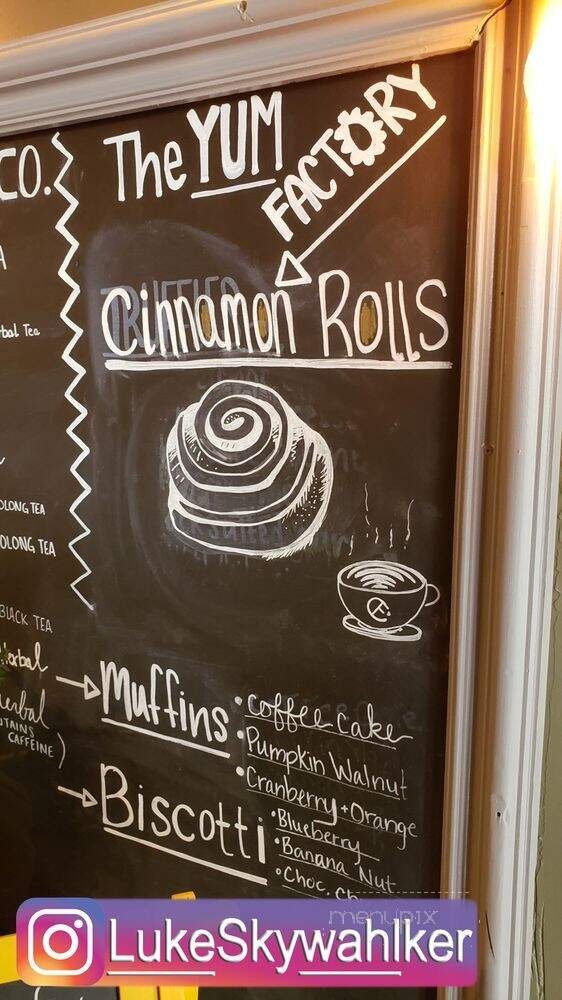 CO.
The YUM
FACTORY
bal Tea
Cinnamon Rolls
OLONG TEA
OLONG TEA
BLACK TEA
Herbal
erbal
TAINS
CAFFEINE)
Muffins
• coffee cake
• Pumpkin Walnut
• Cranberry + Orange
Biscotti
• Blueberry
• Banana Nut
• Choc. Ch
menupix
LukeSkywahlker